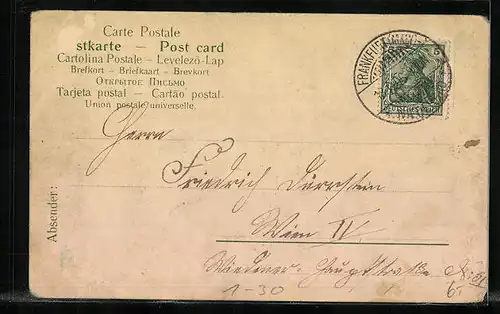 Carte Postale
stkarte — Post card
Cartolina Postale — Levelező-Lap
Brefkort — Briefkaart — Brevkort
Открытое Письмо
Tarjeta postal — Cartão postal.
Union postale universelle.
FRANKFURT
Herrn
Friedrich Dürrstein
Wien IV.
Wiedener-Hauptstraße
Absender:
1-30